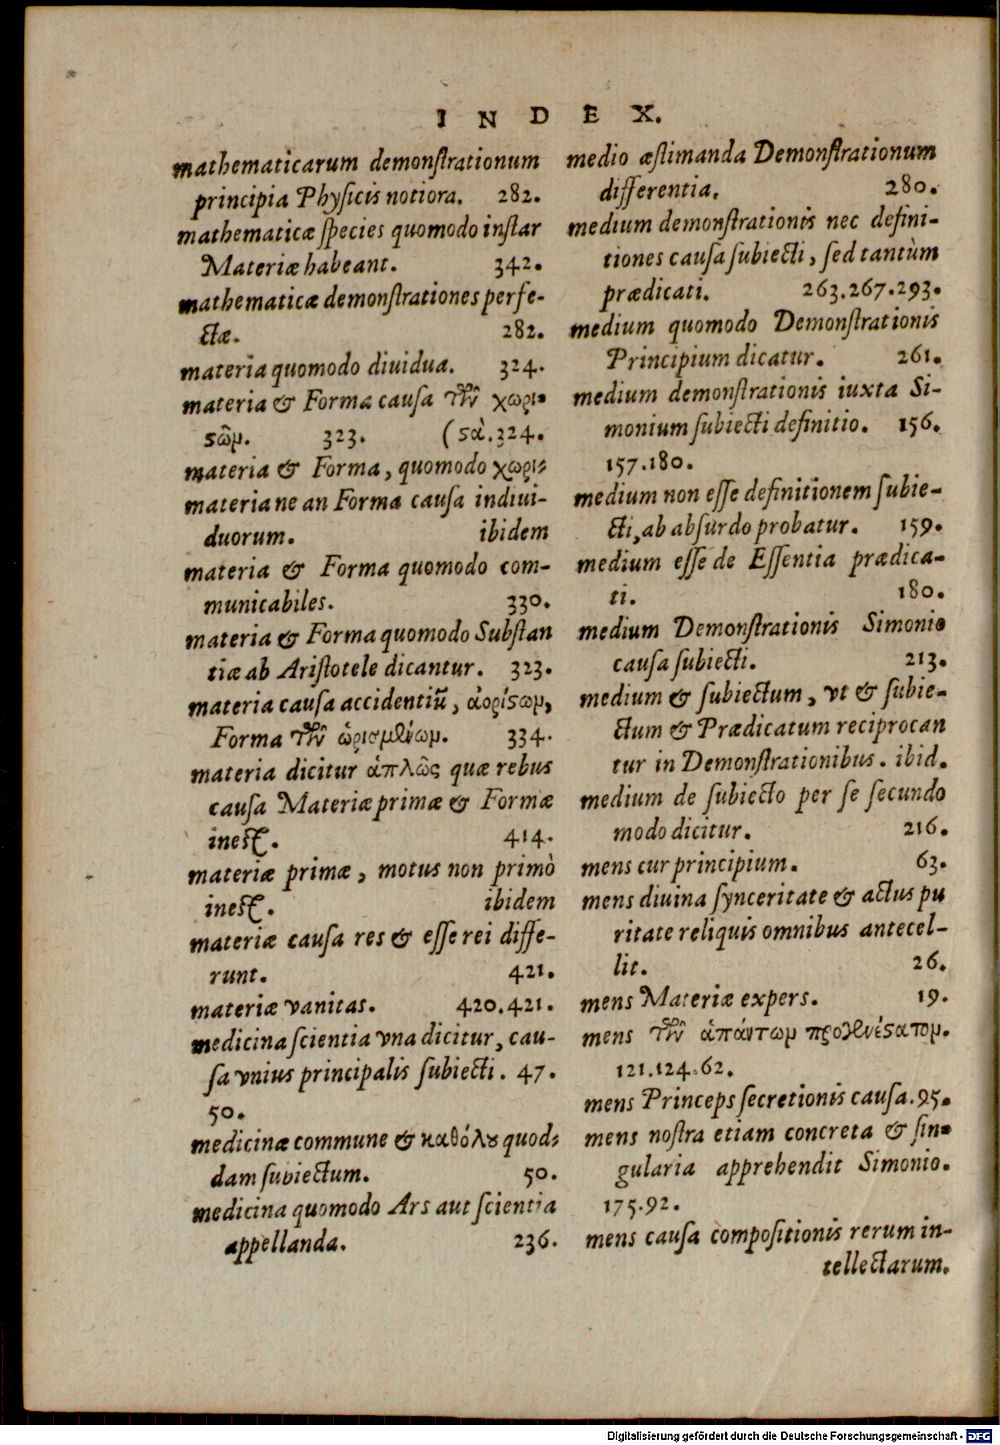 INDEX.
mathematicarum demonstrationum
principia Physicis notiora. 282.
mathematicæ species quomodo instar
Materiæ habeant. 342.
mathematicæ demonstrationes perfe-
ctæ. 282.
materia quomodo diuidua. 324.
materia & Forma causa τῶν χωρι-
ϛῶμ. 323. (ϛὰ. 324.
materia & Forma, quomodo χωρι-
materia ne an Forma causa indiui-
duorum. ibidem
materia & Forma quomodo com-
municabiles. 330.
materia & Forma quomodo Substan
tiæ ab Aristotele dicantur. 323.
materia causa accidentiũ, ἀορίϛωμ,
Forma τῶν ὡρισμένωμ. 334.
materia dicitur ἁπλῶς quæ rebus
causa Materiæ primæ & Formæ
inest. 414.
materiæ primæ, motus non primò
inest. ibidem
materiæ causa res & esse rei diffe-
runt. 421.
materiæ vanitas. 420.421.
medicina scientia vna dicitur, cau-
sa vnius principalis subiecti. 47.
50.
medicinæ commune & καθόλου quod-
dam subiectum. 50.
medicina quomodo Ars aut scientia
appellanda. 236.
medio æstimanda Demonstrationum
differentia. 280.
medium demonstrationis nec defini-
tiones causa subiecti, sed tantùm
prædicati. 263.267.293.
medium quomodo Demonstrationis
Principium dicatur. 261.
medium demonstrationis iuxta Si-
monium subiecti definitio. 156.
157.180.
medium non esse definitionem subie-
cti, ab absurdo probatur. 159.
medium esse de Essentia prædica-
ti. 180.
medium Demonstrationis Simonio
causa subiecti. 213.
medium & subiectum, vt & subie-
ctum & Prædicatum reciprocan
tur in Demonstrationibus. ibid.
medium de subiecto per se secundo
modo dicitur. 216.
mens cur principium. 63.
mens diuina synceritate & actus pu
ritate reliquis omnibus antecel-
lit. 26.
mens Materiæ expers. 19.
mens τῶν ἁπάντωμ προγενέϛατομ.
121.124.62.
mens Princeps secretionis causa. 95.
mens nostra etiam concreta & sin-
gularia apprehendit Simonio.
175.92.
mens causa compositionis rerum in-
tellectarum.
Digitalisierung gefördert durch die Deutsche Forschungsgemeinschaft - DFG